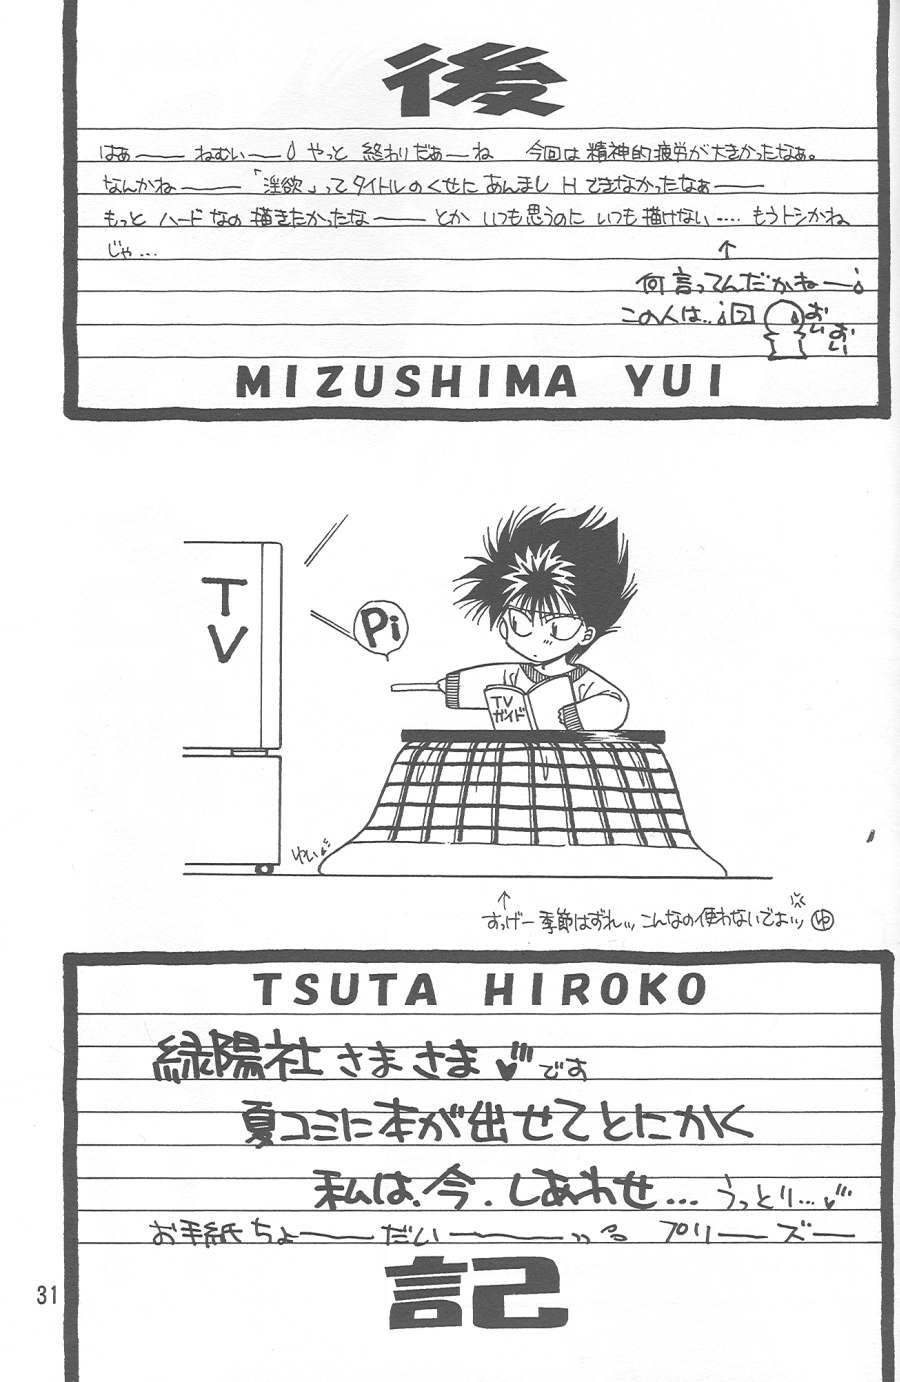 後
はぁ―― ねむい―― やっと 終わりだぁ―ね 今回は 精神的疲労が大きかったなぁ。
なんかね――― 「淫欲」ってタイトルのくせに あんまし H できなかったなぁ――
もっと ハードなの 描きたかったな―― とか いつも思うのに いつも描けない…. もうトシかね
じゃ…
↑
何言ってんだかね―
この人は..
おい
おい
MIZUSHIMA YUI
TV
Pi
TV
ガイド
ゆい
↑
すっげー季節はずれッ こんなの使わないでよッ ゆ
TSUTA HIROKO
緑陽社さまさま♥です
夏コミに本が出せてとにかく
私は、今、しあわせ… うっとり…♥
お手紙ちょ――だい―――っっる プリ――ズ―
記
31